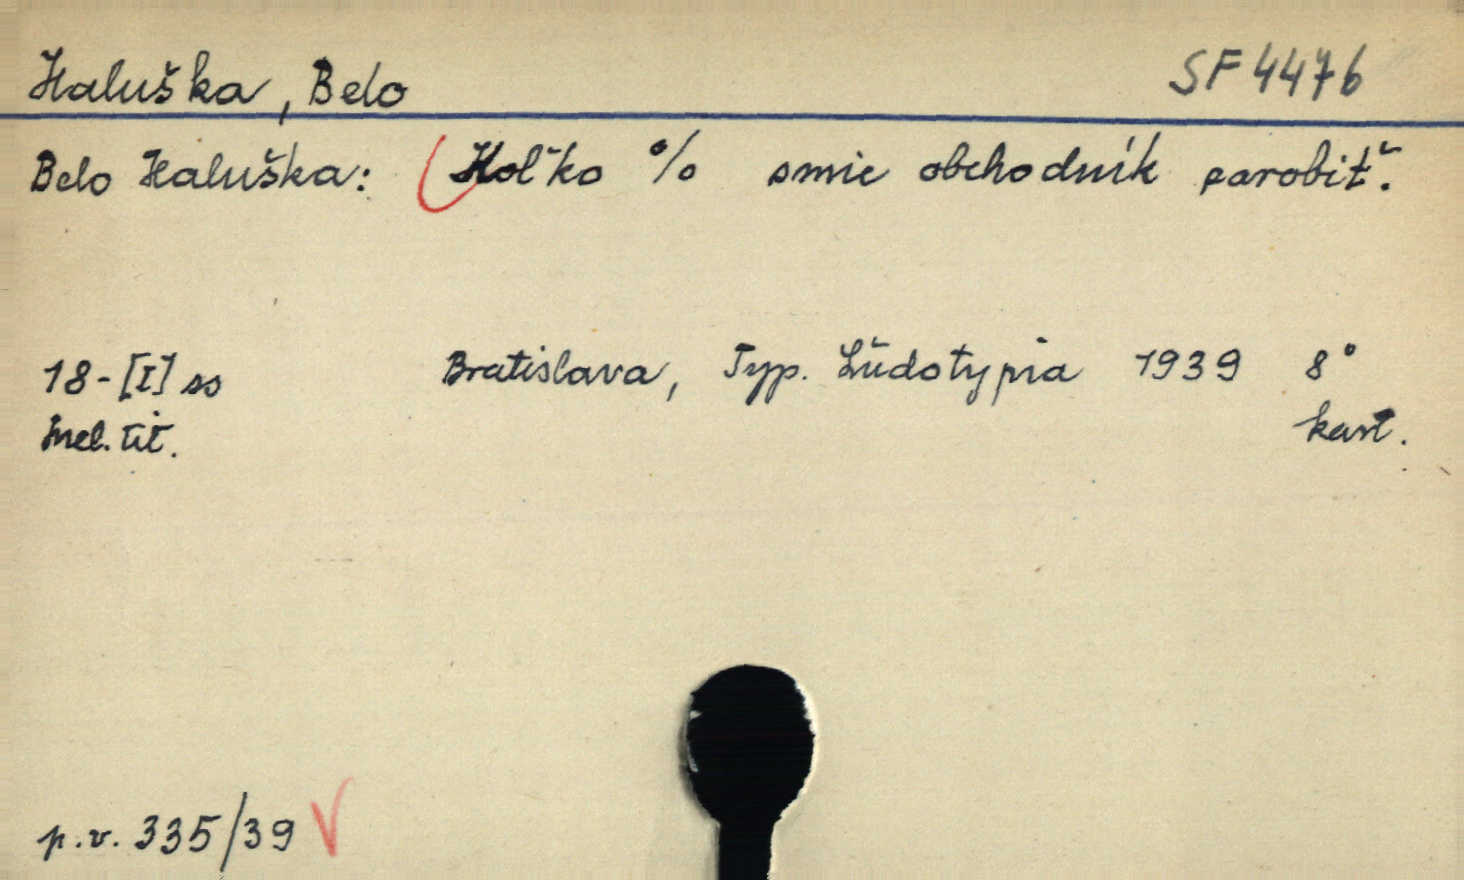 Haluška, Belo SF 4476
Belo Haluška: Koľko % smie obchodník zarobiť.
18-[I] ss Bratislava, Typ. Ľudotypia 1939 8°
Predl. tit. kart.
p.v. 335/39 V